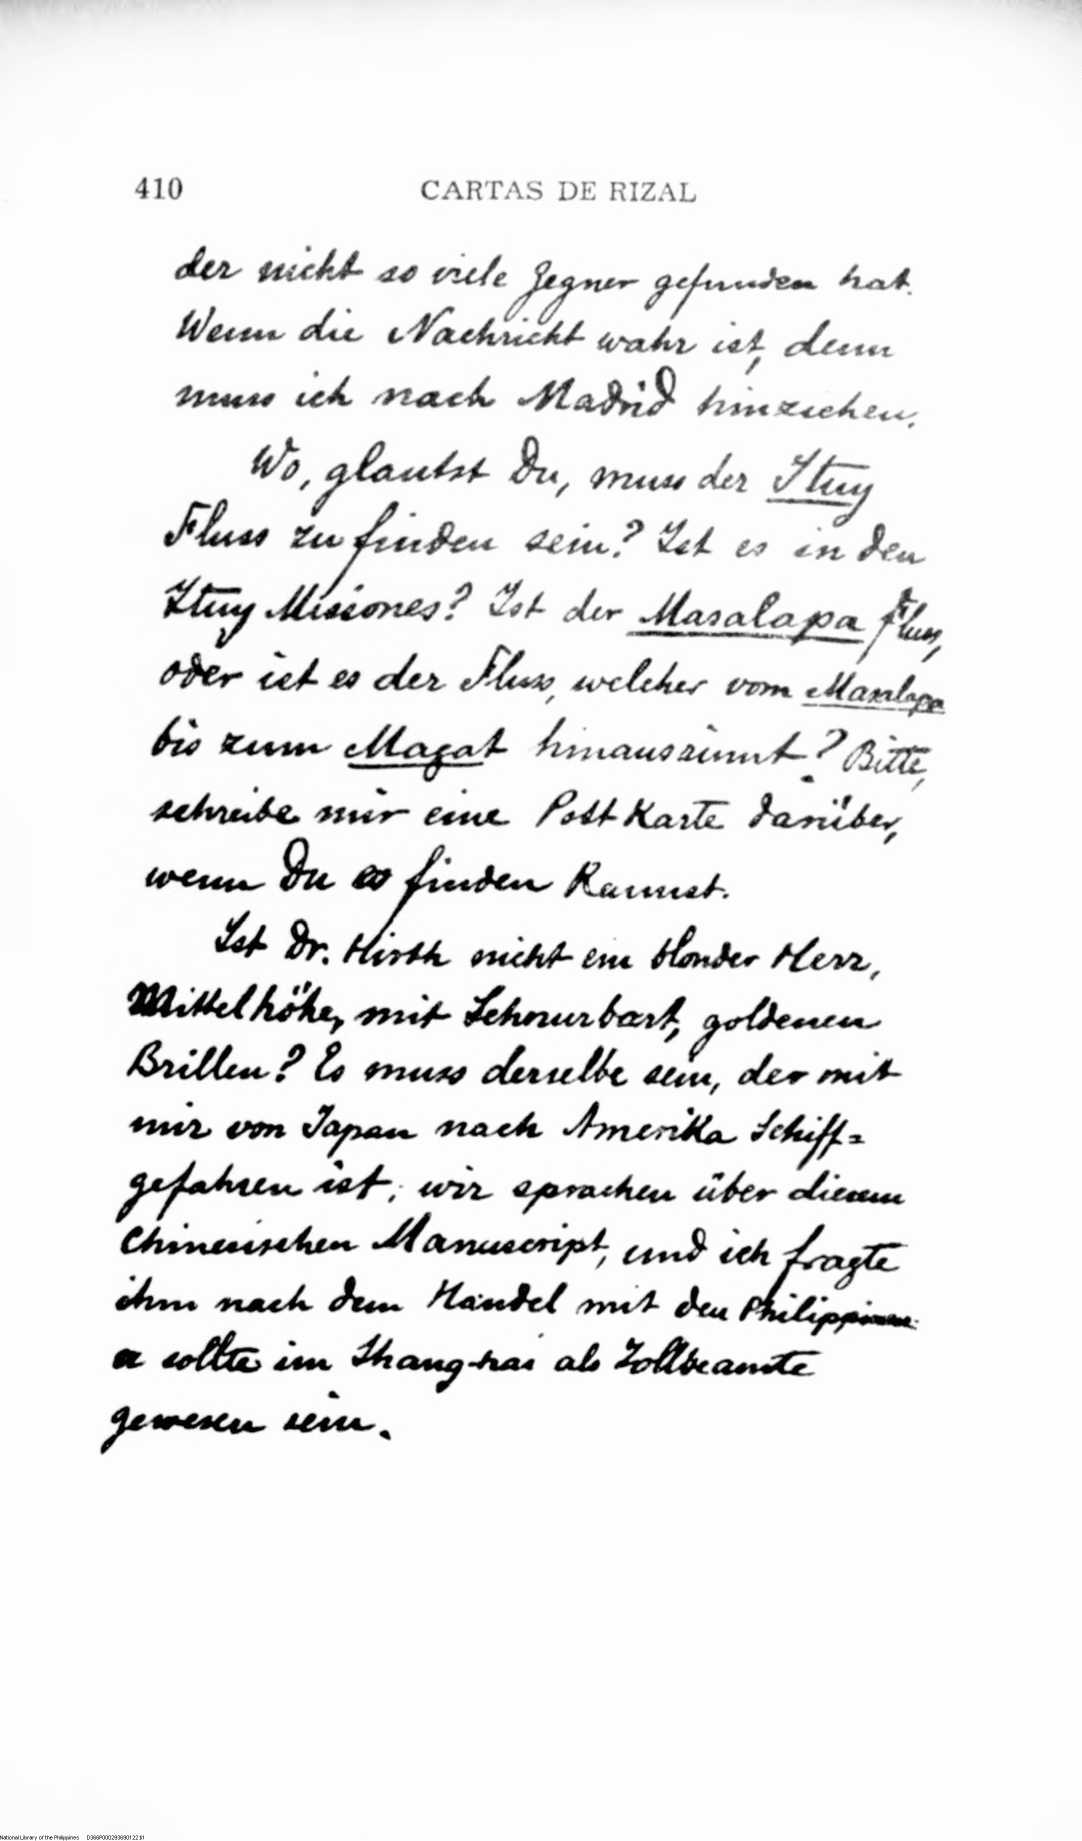 410 CARTAS DE RIZAL
der nicht so viele Gegner gefunden hat.
Wenn die Nachricht wahr ist, denn
muss ich nach Madrid hinziehen.
Wo, glaubst Du, muss der Ituy
Fluss zu finden sein? Ist es in den
Ituy Missiones? Ist der Masalapa Fluss,
oder ist es der Fluss, welcher vom Masalapa
bis zum Magat hinausrinnt? Bitte,
schreibe mir eine Post Karte darüber,
wenn Du es finden Kannst.
Ist Dr. Hirth nicht ein blonder Herr,
Mittelhöhe, mit Schnurbart, goldenen
Brillen? Es muss derselbe sein, der mit
mir von Japan nach Amerika Schiff=
gefahren ist; wir sprachen über diesem
Chinesischen Manuscript, und ich fragte
ihm nach dem Handel mit den Philippinen.
er sollte im Shang-hai als Zollbeamte
gewesen sein.
National Library of the Philippines